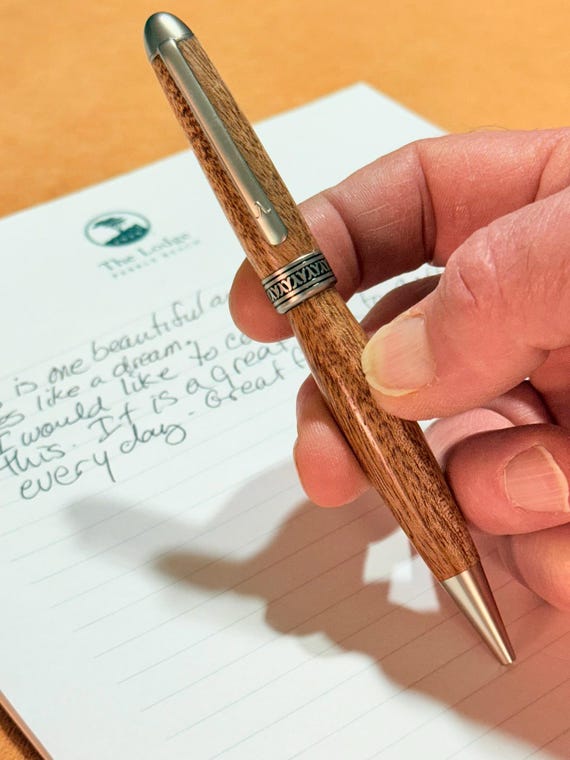 The Lodge
PEBBLE BEACH
is one beautiful a
like a dream.
I would like to co
this. It is a great
every day. Great